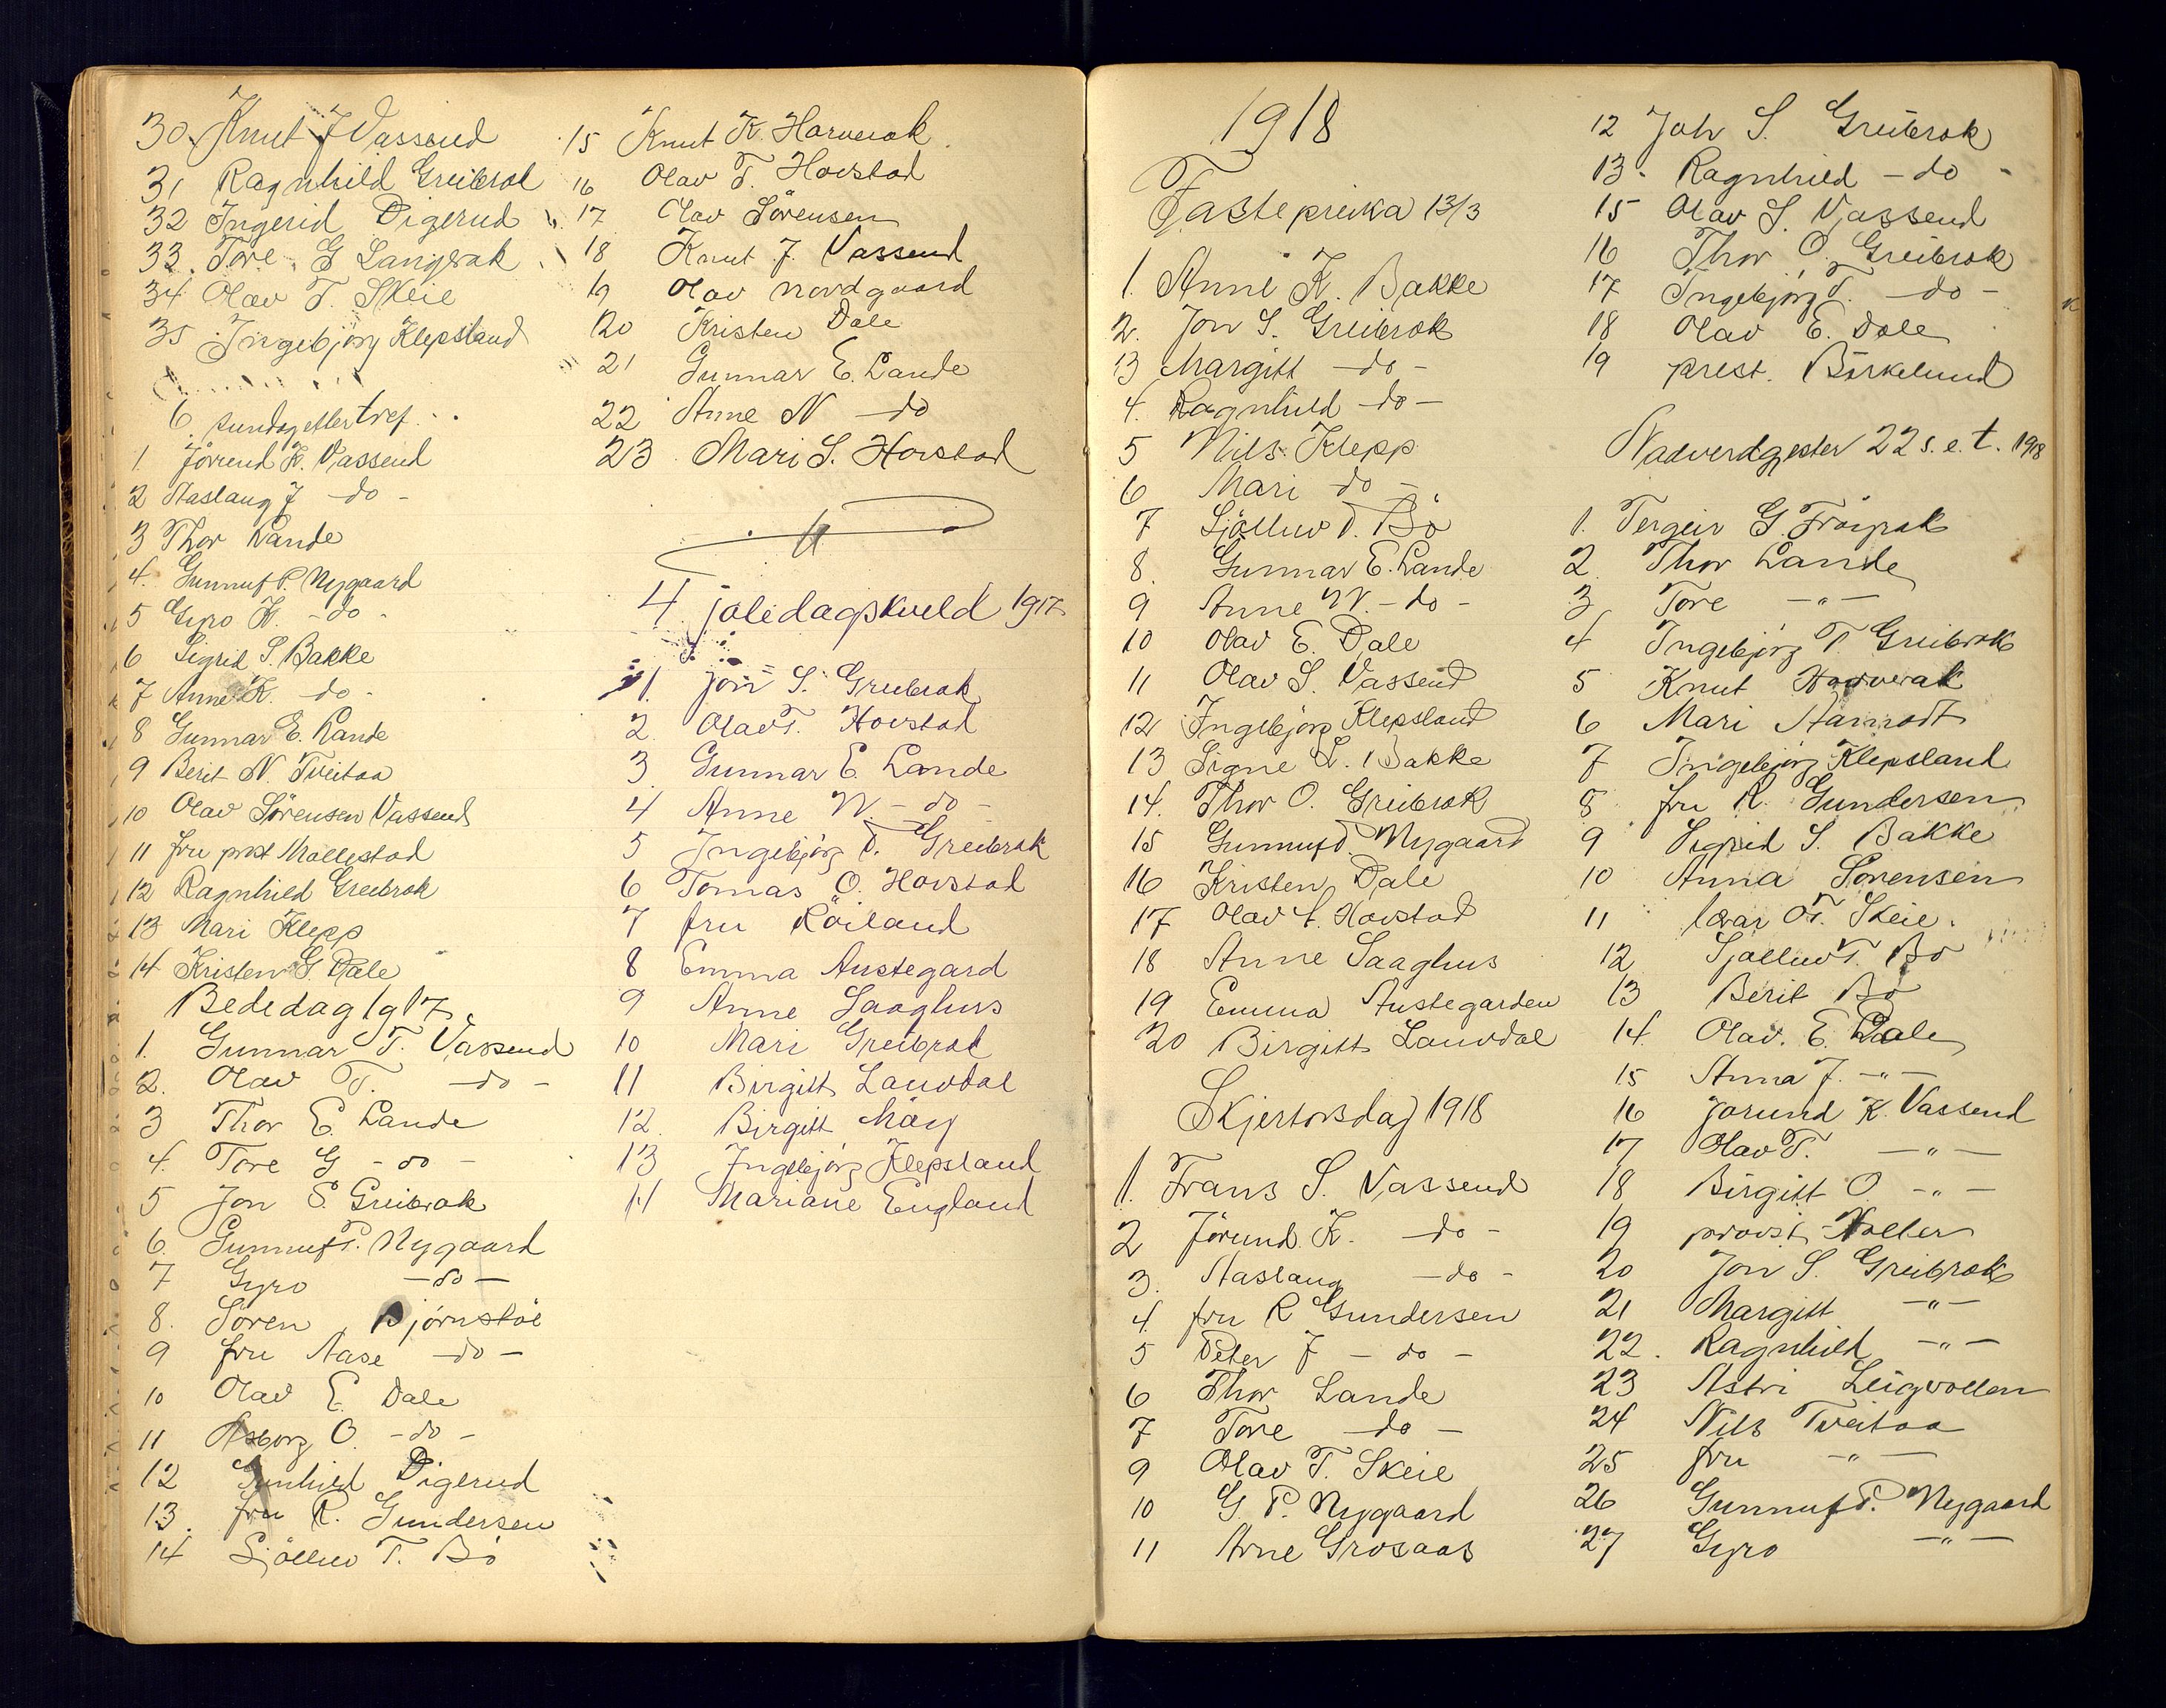 30. Knut J Vassend
31 Ragnhild Greibrok
32 Ingerid Digerud
33. Tore G Langerak
34 Olav T. Skeie
35 Ingebjörg Klepsland
6. sundag etter tref.
1. Jörund K. Vassend
2 Aaslaug J - do -
3 Thor Lande
4. Gunnuf P. Nygaard
5 Gyro K. - do -
6 Sigrid S. Bakke
7 Anne K. - do -
8 Gunnar E. Lande
9 Berit N. Tveitaa
10 Olav Sörensen Vassend
11 fru prost Möllestad
12 Ragnhild Greibrok
13 Mari Klepp
14 Kristen G. Dale
Bededag 1917.
1. Gunnar T. Vassend
2. Olav T. - do -
3 Thor E. Lande
4. Tore G - do -
5 Jon S. Greibrok
6. Gunnuf P. Nygaard
7 Gyro - do -
8. Sören Björnstöl
9 fru Aase - do -
10 Olav E. Dale
11 Asborg O. - do -
12 Gunhild Digerud
13. fru R. Gundersen
14 Sjölluv T. Bö
15 Knut K. Harverak
16 Olav T. Hovstad
17 Olav Sörensen
18 Knut J. Vassend
19 Olav Nordgaard
20 Kristen Dale
21 Gunnar E. Lande
22 Anne N - do
23 Mari S. Hovstad
4. joledagskveld 1917
1. Jon S. Greibrok
2. Olav T. Hovstad
3. Gunnar E. Lande
4 Anne N. - do -
5 Ingebjörg T. Greibrok
6 Tomas O. Hovstad
7 fru Röiland
8 Emma Austegard
9 Anne Saaghus
10 Mari Greibrok
11 Birgitt Lauvdal
12. Birgitt
13 Ingebjörg Klepsland
14 Mariane England
1918
Fastepreika 13/3
1. Anne K. Bakke
2. Jon S. Greibrok
3 Margitt - do -
4. Ragnhild - do -
5 Nils Klepp
6 Mari - do -
7 Sjölluv T. Bö
8. Gunnar E. Lande
9 Anne N. - do -
10 Olav E. Dale
11 Olav S. Vassend
12 Ingebjörg Klepsland
13 Signe L. Bakke
14. Thor O. Greibrok
15 Gunnuf P. Nygaard
16 Kristen Dale
17 Olav T. Hovstad
18 Anne Saaghus
19 Emma Austegarden
20 Birgitt Lauvdal
Skjertorsdag 1918
1. Frans S. Vassend
2 Jörund K. - do -
3. Aaslaug - do -
4. fru R Gundersen
5 Peter J - do -
6 Thor Lande
7 Tore - do -
9 Olav T. Skeie
10 G. P. Nygaard
11 Arne Grosaas
12 Joh S. Greibrok
13. Ragnhild - do -
15 Olav S. Vassend
16 Thor O. Greibrok
17 Ingebjörg T. - do -
18 Olav E. Dale
19 prest. Birkelund
Nadverdgjester 22 s. e. t. 1918
1. Tergeir G. Fröisak
2. Thor Lande
3 Tore - " -
4 Ingebjörg T. Greibrok
5 Knut Harverak
6 Mari Aamodt
7 Ingebjörg Klepsland
8 fru R. Gundersen
9 Sigrid S. Bakke
10 Anna Sörensen
11 Ivar O. T. Skeie.
12 Sjölluv T. Bö
13 Berit Bö
14. Olav. E. Dale
15 Anna J. - " -
16 Jorund K. Vassend
17 Olav T. - " -
18 Birgitt O. - " -
19 provst
20 Jon S. Greibrok
21 Margitt - " -
22. Ragnhild - " -
23 Astri Leigvollen
24 Nils Tveitaa
25 fru - " -
26 Gunnuf P. Nygaard
27 Gyro - " -